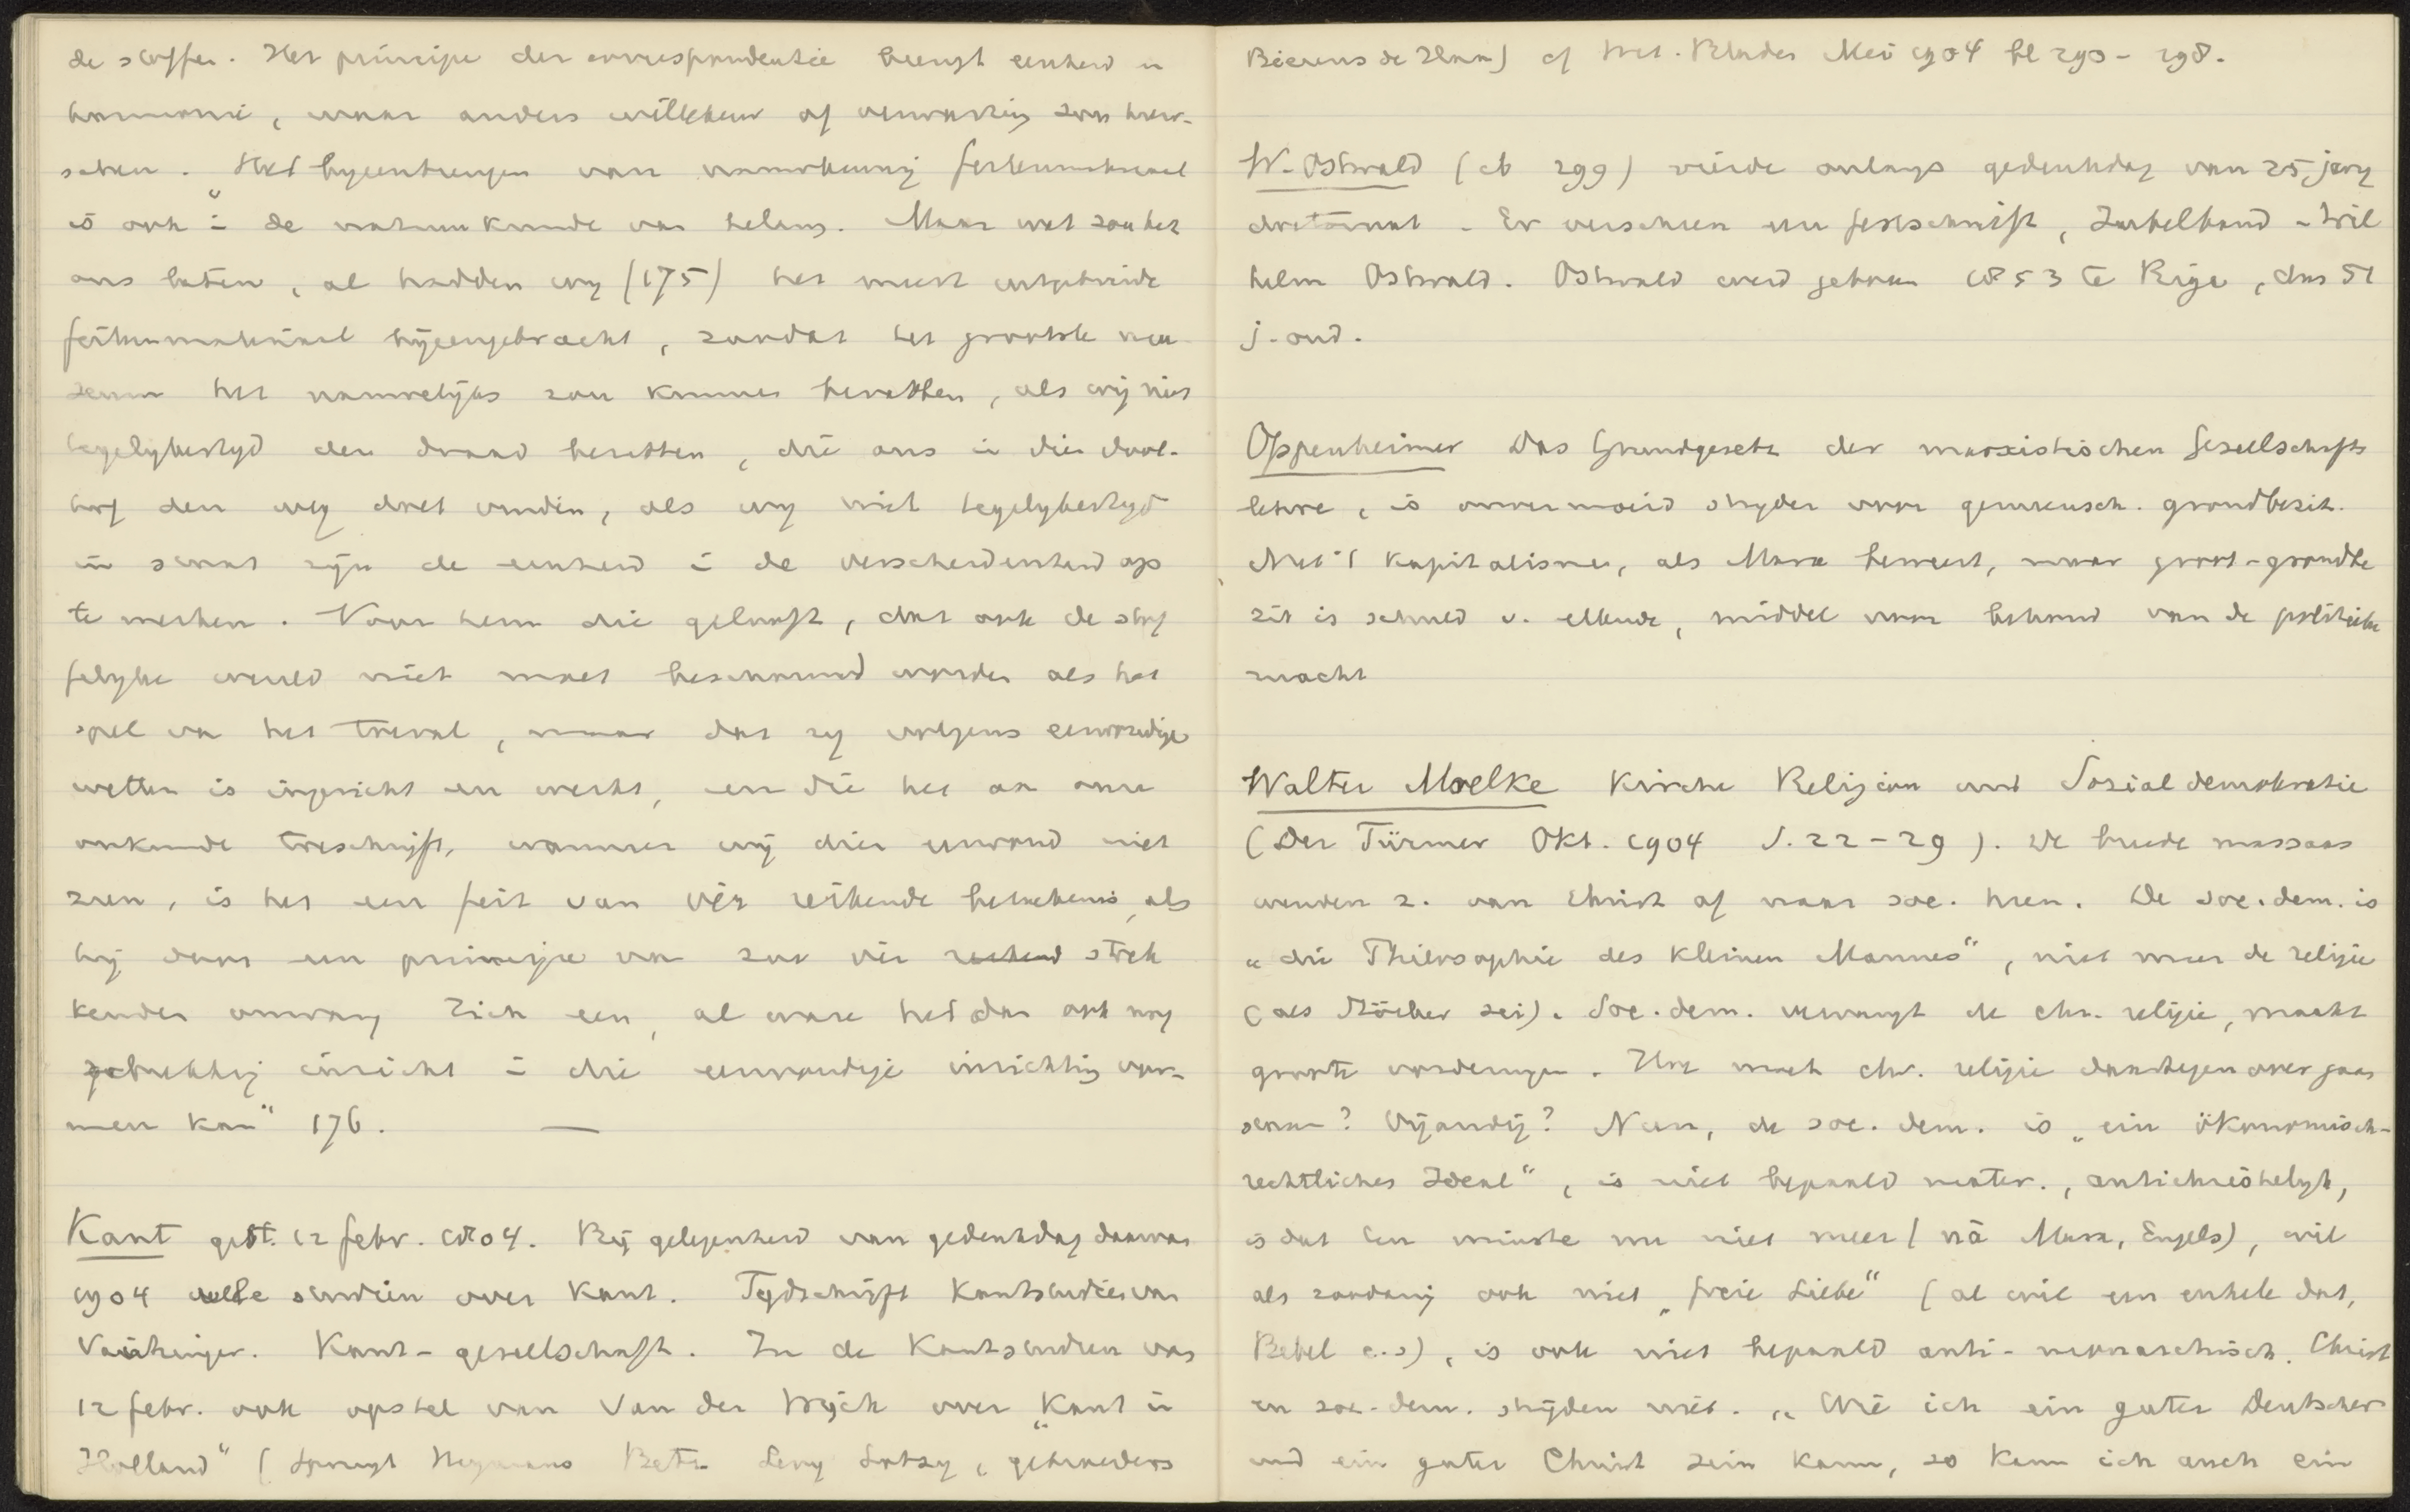 de stoffen. Het principe der correspondentie brengt eenheid en
harmonie, waar anders willekeur of verwarring zou heer-
schen. Het byeenbrengen van nauwkeurig feitenmateriaal
is ook in de natuurkunde van belang. Maar wat zou het
ons baten, al hadden wy (175) het meest uitgebreide
feitenmateriaal bijeengebracht, zoodat het grootste
het nauwelijks zou kunnen bevatten, als wij niet
tegelykertyd den draad bezitten, die ons in dien dool-
hof den weg doet vinden, als wy niet tegelykertyd
in staat zijn de eenheid in de verscheidenheid op
te merken. Voor hem die gelooft, dat ook de stof
felyke wereld niet moet beschouwd worden als het
spel van het toeval, maar dat zy volgens eenvoudige
wetten is ingericht en werkt, en die het aan onze
onkunde toeschrijft, wanneer wij dien eenvoud niet
zien, is het een feit van vér reikende beteekenis, als
hij daar een principe van zoo vér reikend strek
kenden omvang ziet een, al ware het dan ook nog
gebrekkig inzicht in die eenvoudige inrichting vor-
men kan" 176. —
Kant gest. 12 febr. 1804. Bij gelegenheid van gedenkdag daarvan
1904 vele studiën over Kant. Tydschrift Kantstudien van
Vaihinger. Kant-gesellschaft. In de Kantstudien van
12 febr. ook opstel van Van der Wijck over "Kant in
Holland" ( Heymans Betz Levy Lotsy, gebroeders
Bierens de Haan) cf Wet. Bladen Mei 1904 bl 290-298.
W. Ostwald (cb 299) vierde onlangs gedenkdag van 25jarig
doctoraat. Er verscheen een festschrift, Jubelband - Wil
helm Ostwald. Ostwald werd geboren 1853 te Riga, dus 51
j. oud.
Oppenheimer Das Grundgesetz der marxistischen Gesellschafts
lehre, is onvermoeid stryder voor gemeensch. grondbezit.
Niet 't kapitalisme, als Marx beweert, maar groot-grondbe
zit is schuld v. ellende, middel voor behoud van de politieke
macht
Walter Moelke Kirche Religion und Sozialdemokratie
(Der Türmer Okt. 1904 S. 22-29). De breede massaas
wenden z. van Christ af naar soc. heen. De soc.dem. is
"die Philosophie des kleinen Mannes", niet meer de religie
(als Stöcker zei). Soc.dem. vervangt de chr. religie, maakt
groote vorderingen. Hoe moet chr. religie daartegenover gaan
staan? Vijandig? Neen, de soc. dem. is "ein ökonomisch-
rechtliches Ideal", is niet bepaald mater., antichristelyk,
is dat ten minste nu niet meer (ná Marx, Engels), wil
als zoodanig ook niet "freie Liebe" (al wil een enkele dat,
Bebel e.a), is ook niet bepaald anti-monarchisch. Christ
en soc.-dem. stryden niet. "Wie ich ein guter Deutscher
und ein guter Christ sein kann, so kann ich auch ein